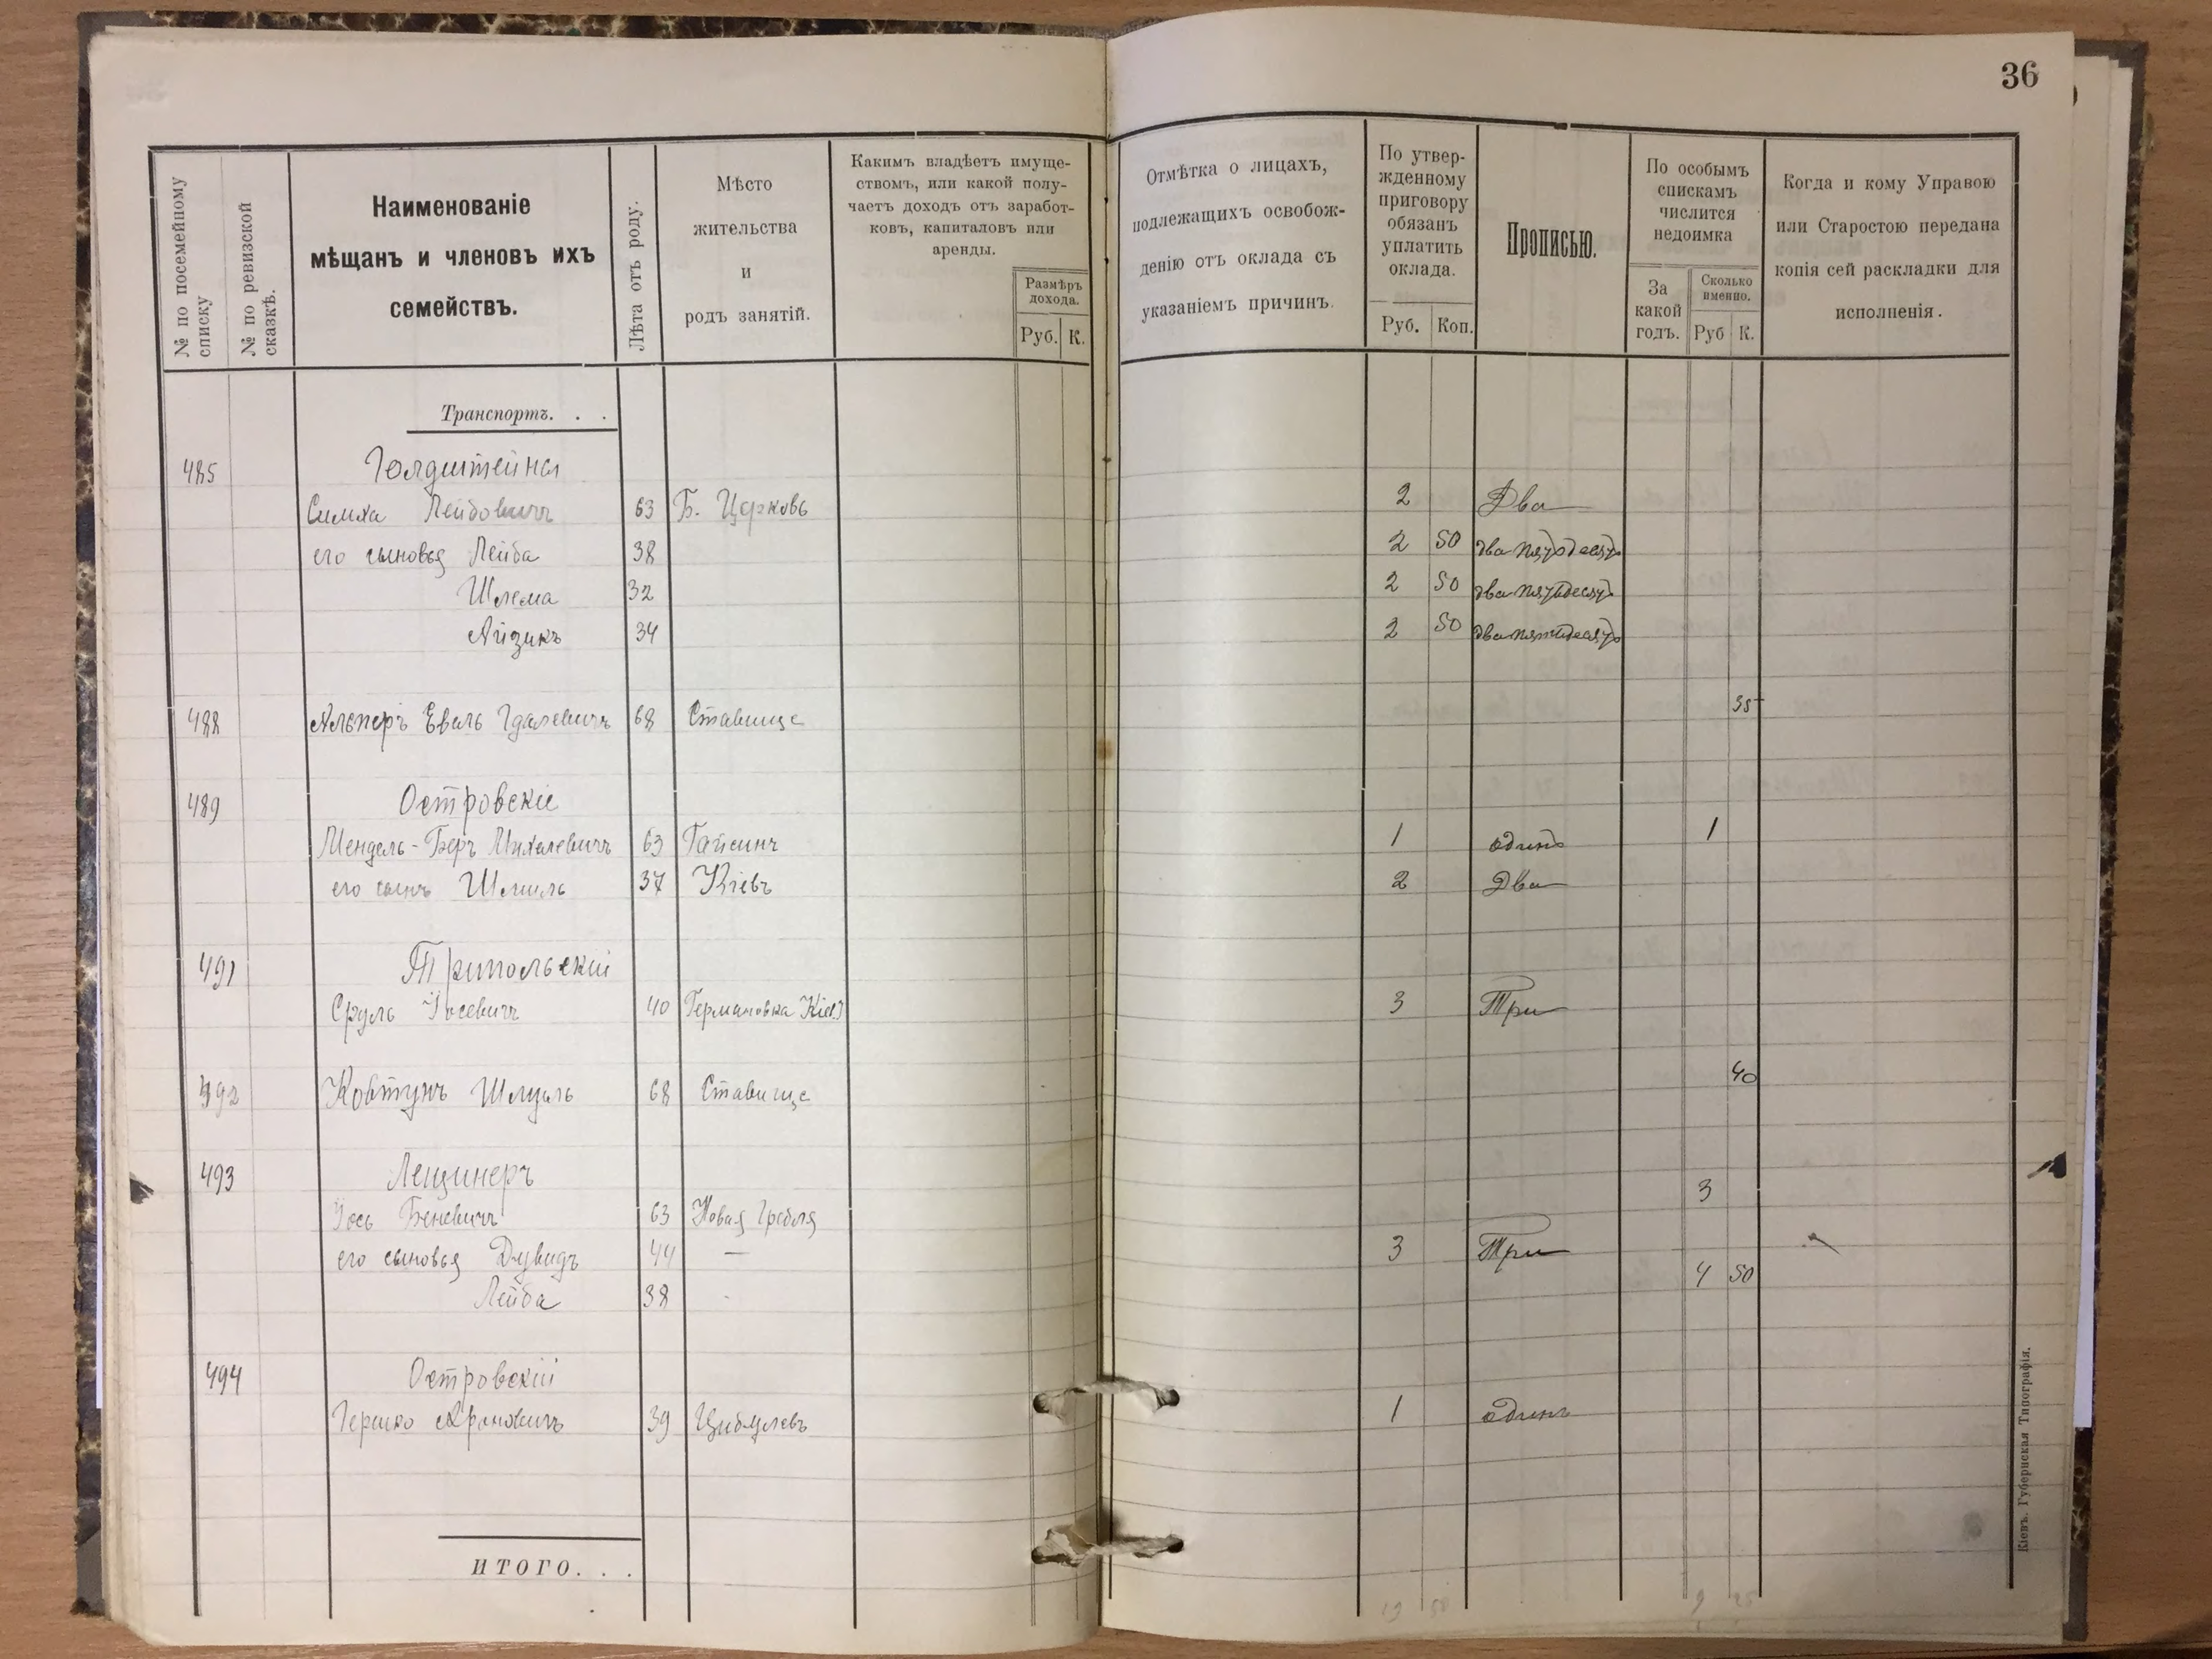 36
№ по посемейному списку
№ по ревизской сказкѣ.
Наименованіе
мѣщанъ и членовъ ихъ
семействъ.
Лѣта отъ роду.
Мѣсто
жительства
и
родъ занятій.
Какимъ владѣетъ имуще-
ствомъ, или какой полу-
чаетъ доходъ отъ заработ-
ковъ, капиталовъ или
аренды.
Размѣръ
дохода.
Руб. К.
Отмѣтка о лицахъ,
подлежащихъ освобож-
денію отъ оклада съ
указаніемъ причинъ.
По утвер-
жденному
приговору
обязанъ
уплатить
оклада.
Руб. Коп.
Прописью.
По особымъ
спискамъ
числится
недоимка
За
какой
годъ.
Сколько
именно.
Руб К.
Когда и кому Управою
или Старостою передана
копія сей раскладки для
исполненія.
Транспортъ. . .
485 Голдштейны
Симха Лейбовичъ 63 Б. Церковь 2 Два
его сыновья Лейба 38 2 50 два пятьдесят
Шлема 32 2 50 два пятьдесят
Айзикъ 34 2 50 два пятьдесят
488 Альперъ Евель Гдалевичъ 68 Ставище 35
489 Островскіе
Мендель-Беръ Михелевичъ 63 Гайсинъ 1 одинъ 1
его сынъ Шмиль 37 Кіевъ 2 Два
491 Трипольскій
Сруль Іосевичъ 40 Германовка Кіев. 3 Три
492 Ковтунъ Шмуль 68 Ставище 40
493 Лещинеръ
Іось Беневичъ 63 Новая Гребля 3
его сыновья Дувидъ 44 — 3 Три
Лейба 38 4 50
494 Островскій
Гершко Ароновичъ 39 Цибулевъ 1 одинъ
ИТОГО. . .
Кіевъ. Губернская Типографія.